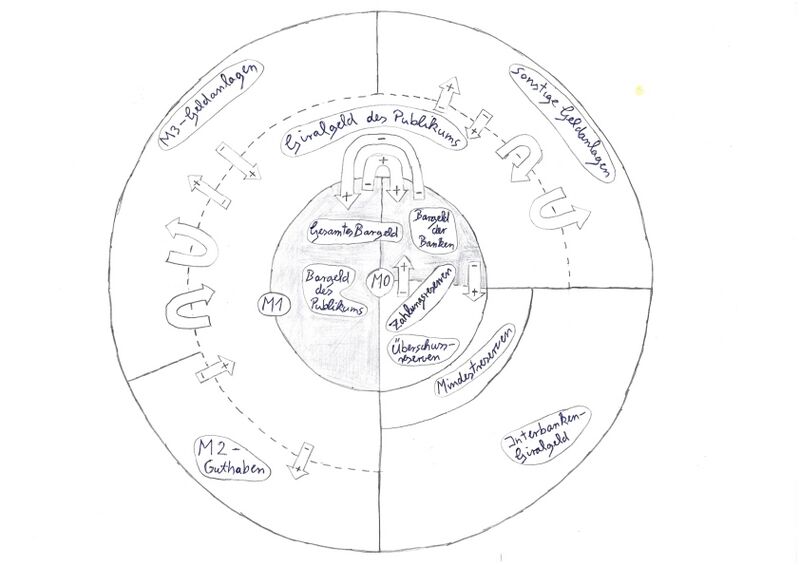 M3-Geldanlagen
Sonstige-Geldanlagen
Giralgeld des Publikums
Gesamtes Bargeld
Bargeld
der
Banken
Bargeld
des
Publikums
M0
M1
Zahlungsreserven
Überschuss-
reserven
Mindestreserven
M2-
Guthaben
Interbanken-
Giralgeld